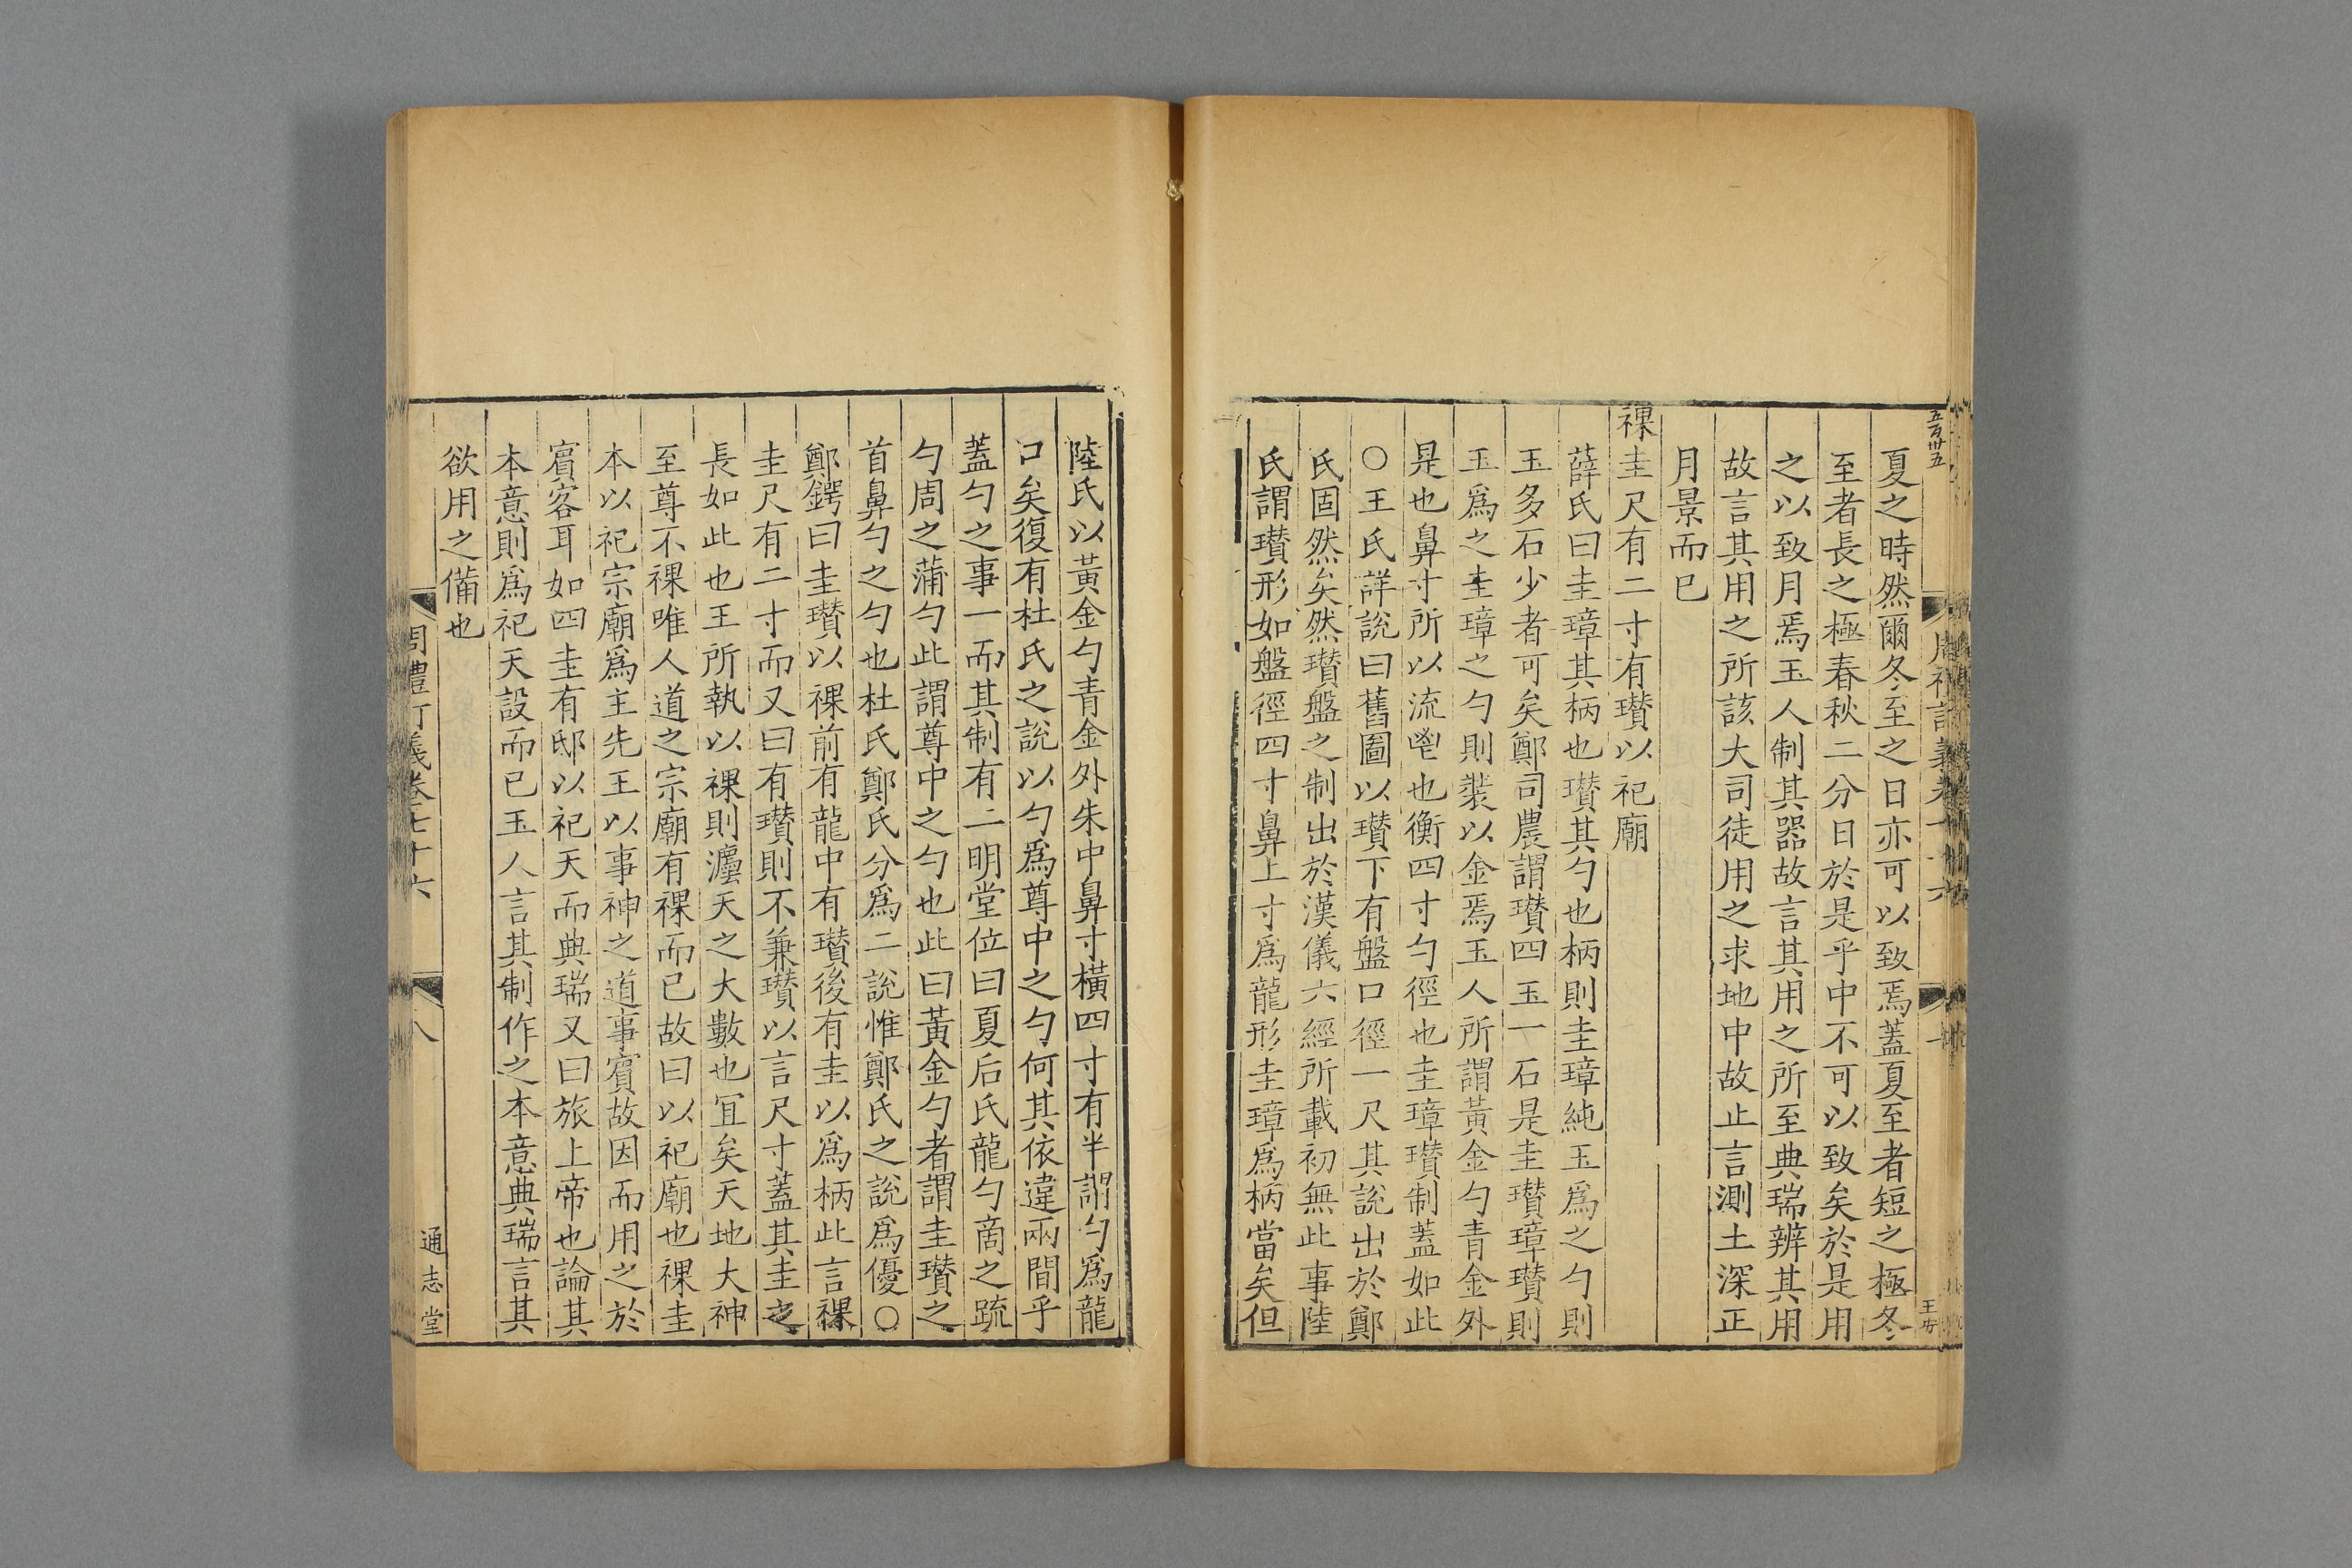 夏之時然爾冬至之日亦可以致焉蓋夏至者短之極冬
至者長之極春秋二分日於是乎中不可以致矣於是用
之以致月焉玉人制其器故言其用之所至典瑞辨其用
故言其用之所該大司徒用之求地中故止言測土深正
月景而已
祼圭尺有二寸有瓚以祀廟
薛氏曰圭璋其柄也瓚其勺也柄則圭璋純玉爲之勺則
玉多石少者可矣鄭司農謂瓚四玉一石是圭瓚璋瓚則
玉爲之圭璋之勺則裝以金焉玉人所謂黃金勺青金外
是也鼻寸所以流鬯也衡四寸勺徑也圭璋瓚制蓋如此
○王氏詳說曰舊圖以瓚下有盤口徑一尺其說出於鄭
氏固然矣然瓚盤之制出於漢儀六經所載初無此事陸
氏謂瓚形如盤徑四寸鼻上寸爲龍形圭璋爲柄當矣但
陸氏以黃金勺青金外朱中鼻寸橫四寸有半謂勺爲龍
口矣復有杜氏之說以勺爲尊中之勺何其依違兩間乎
蓋勺之事一而其制有二明堂位曰夏后氏龍勺啇之疏
勺周之蒲勺此謂尊中之勺也此曰黃金勺者謂圭瓚之
首鼻勺之勺也杜氏鄭氏分爲二說惟鄭氏之說爲優○
鄭鍔曰圭瓚以祼前有龍中有瓚後有圭以爲柄此言祼
圭尺有二寸而又曰有瓚則不兼瓚以言尺寸蓋其圭之
長如此也王所執以祼則灋天之大數也宜矣天地大神
至尊不祼唯人道之宗廟有祼而已故曰以祀廟也祼圭
本以祀宗廟爲主先王以事神之道事賓故因而用之於
賓客耳如四圭有邸以祀天而典瑞又曰旅上帝也論其
本意則爲祀天設而已玉人言其制作之本意典瑞言其
欲用之備也
周禮訂義卷七十六
八
通志堂